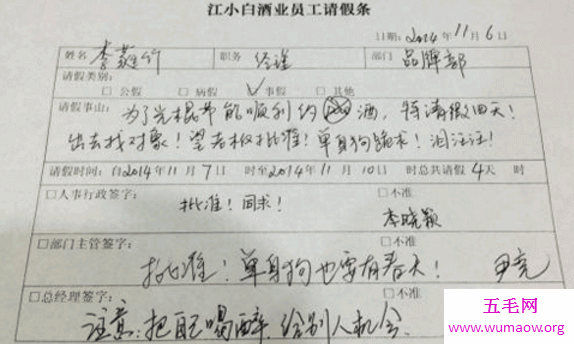 江小白酒业员工请假条
日期: 2014年11月6日
姓名 李蕤竹 职务 经理 部门 品牌部
请假类别:
□公假 □病假 ☑事假 □其他
请假事由: 为了光棍节能顺利约酒, 特请假四天!
出去找对象! 望老板批准! 单身狗跪求! 泪汪汪!
请假时间: 自2014年11月7日 时至2014年11月10日 时总共请假4天 时
□人事行政签字: □不准
批准! 同求! 李晓颖
□部门主管签字: □不准
批准! 单身狗也要有春天! 尹亮
□总经理签字: □不准
注意: 把自己喝醉, 给别人机会.
五毛网
www.wumaow.org